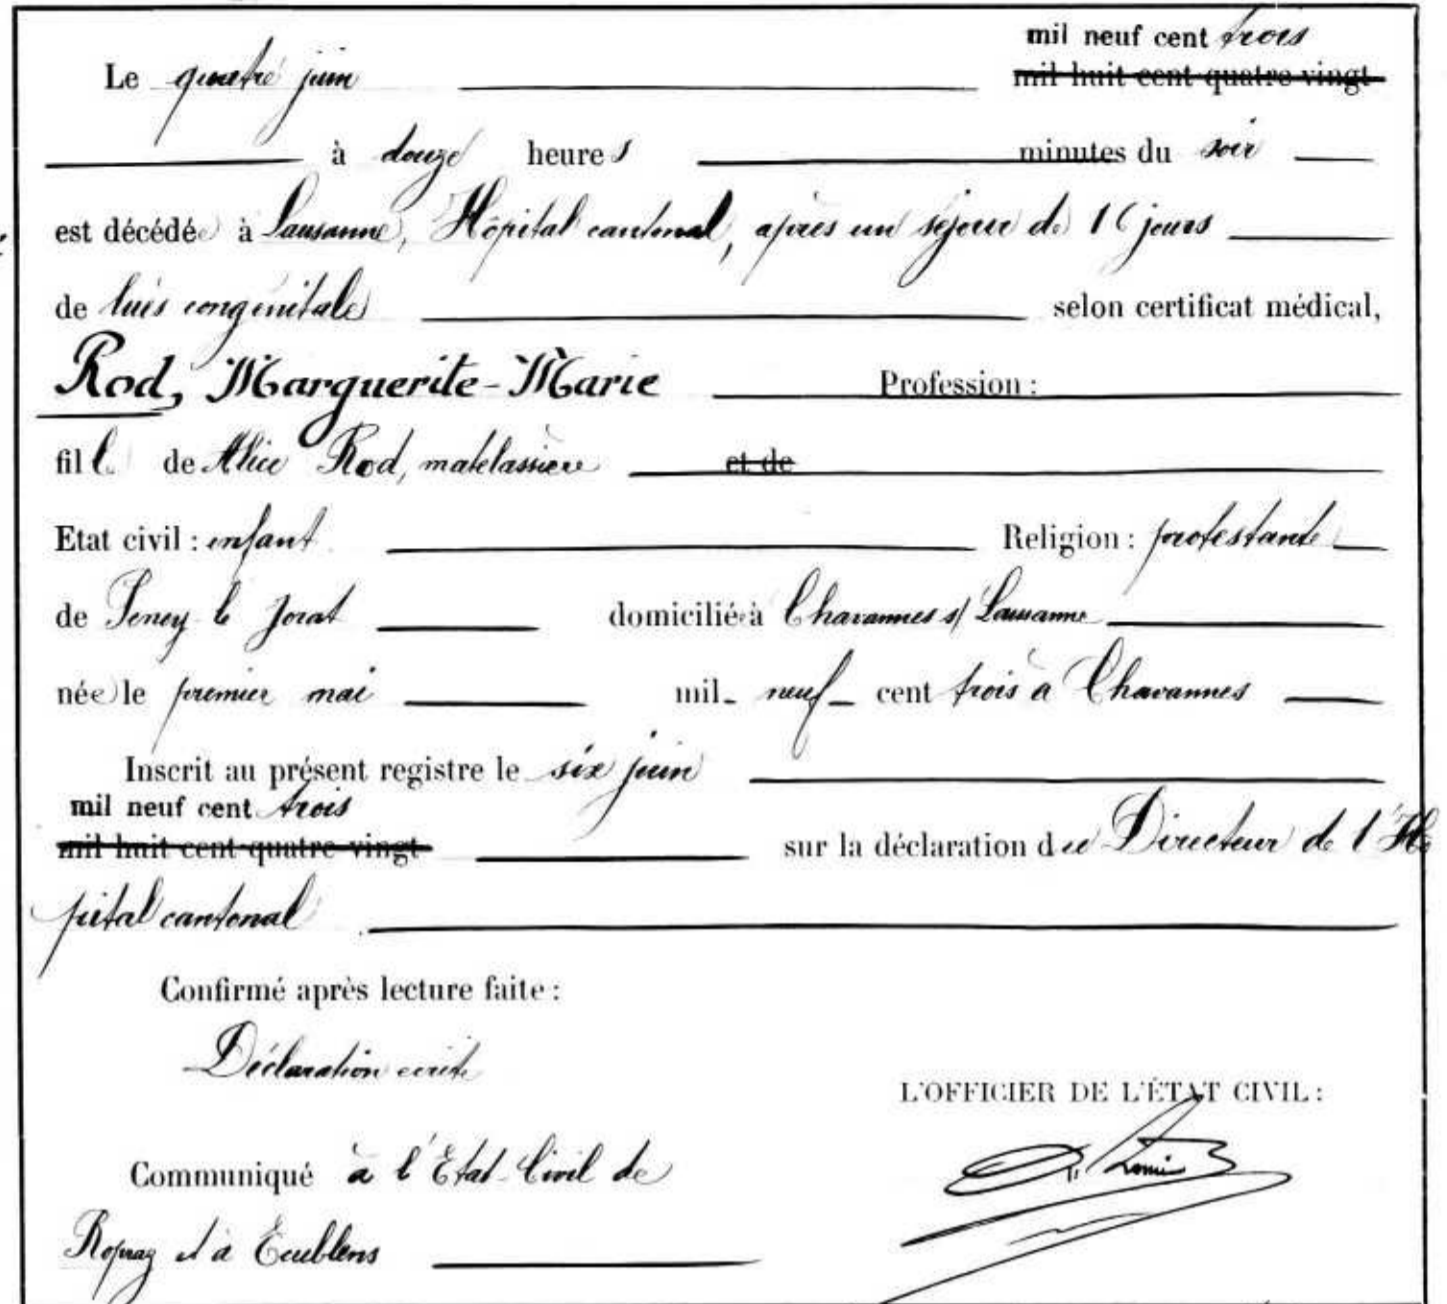 mil neuf cent trois
Le quatre juin mil huit cent quatre-vingt
à douze heures minutes du soir
est décédée à Lausanne, Hôpital cantonal, après un séjour de 16 jours
de luès congénitale selon certificat médical,
Rod, Marguerite-Marie Profession :
fille de Alice Rod, matelassière et de
Etat civil : enfant Religion : protestante
de Peney le Jorat domiciliée à Chavannes s/ Lausanne
née le premier mai mil- neuf- cent trois à Chavannes
Inscrit au présent registre le six juin
mil neuf cent trois
mil huit cent quatre-vingt sur la déclaration du Directeur de l'Hô
pital cantonal
Confirmé après lecture faite :
Déclaration écrite
L'OFFICIER DE L'ÉTAT CIVIL :
Communiqué à l'Etat-Civil de
Ropraz et à Ecublens